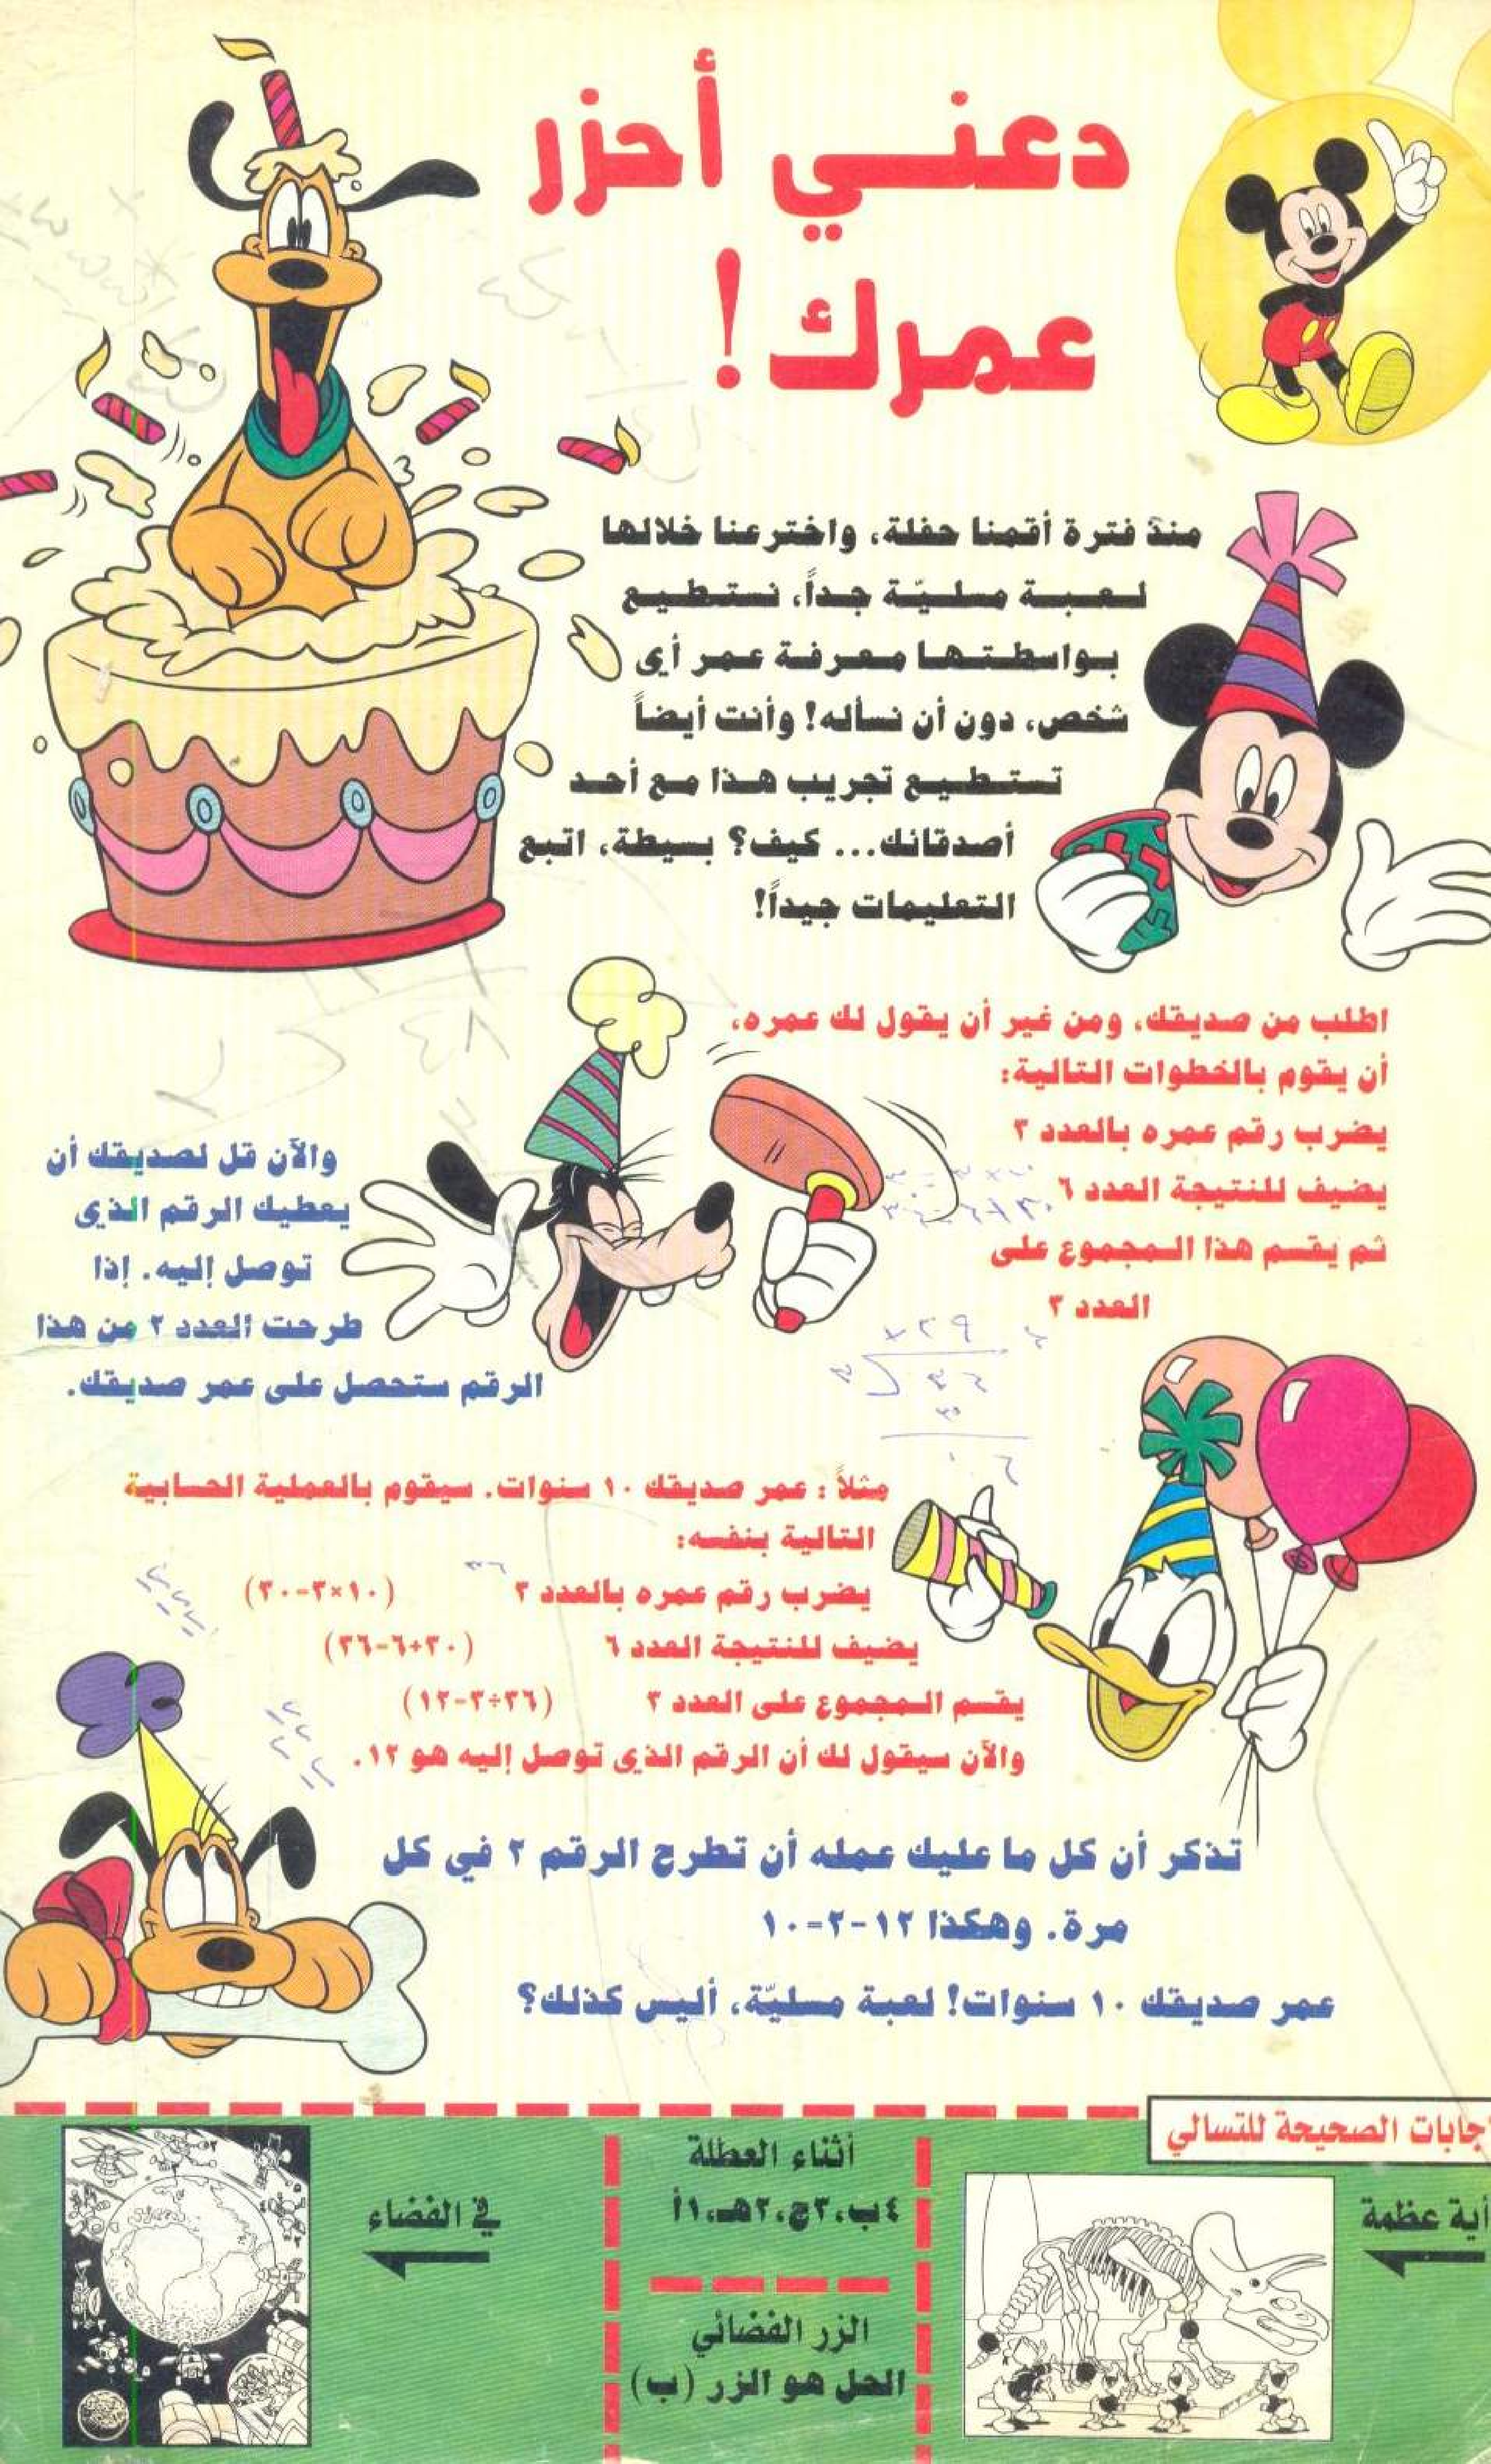 دعني أحزر
عمرك!
منذ فترة أقمنا حفلة، واخترعنا خلالها
لعبة مسليّة جداً، نستطيع
بواسطتها معرفة عمر أي
شخص، دون أن نسأله! وأنت أيضاً
تستطيع تجريب هذا مع أحد
أصدقائك... كيف؟ بسيطة، اتبع
التعليمات جيداً!
اطلب من صديقك، ومن غير أن يقول لك عمره،
أن يقوم بالخطوات التالية:
يضرب رقم عمره بالعدد ٣
يضيف للنتيجة العدد ٦
ثم يقسم هذا المجموع على
العدد ٣
والآن قل لصديقك أن
يعطيك الرقم الذي
توصل إليه. إذا
طرحت العدد ٢ من هذا
الرقم ستحصل على عمر صديقك.
مثلاً : عمر صديقك ١٠ سنوات. سيقوم بالعملية الحسابية
التالية بنفسه:
يضرب رقم عمره بالعدد ٣ (١٠×٣=٣٠)
يضيف للنتيجة العدد ٦ (٣٠+٦=٣٦)
يقسم المجموع على العدد ٣ (٣٦÷٣=١٢)
والآن سيقول لك أن الرقم الذي توصل إليه هو ١٢.
تذكر أن كل ما عليك عمله أن تطرح الرقم ٢ في كل
مرة. وهكذا ١٢-٢=١٠
عمر صديقك ١٠ سنوات! لعبة مسليّة، أليس كذلك؟
جابات الصحيحة للتسالي
أية عظمة
أثناء العطلة
٤ب،٣ج،٢هـ،١أ
الزر الفضائي
الحل هو الزر (ب)
في الفضاء